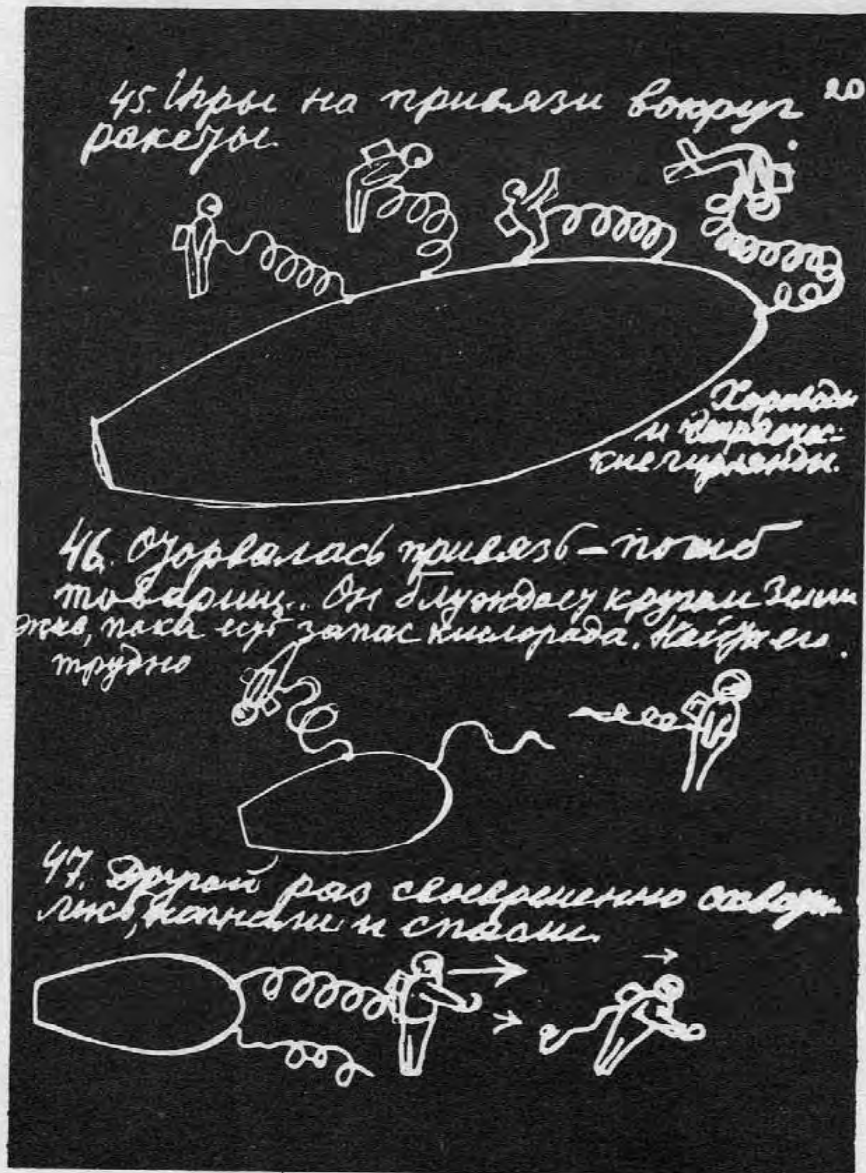 20
45. Игры на привязи вокруг
ракеты.
Хороводы
и
гирлянды.
46. Оторвалась привязь – погиб
товарищ.. Он блуждает кругом Земли
жив, пока есть запас кислорода. Найти его
трудно
47. Другой раз своевременно схвати-
лись, нагнали и спасли.